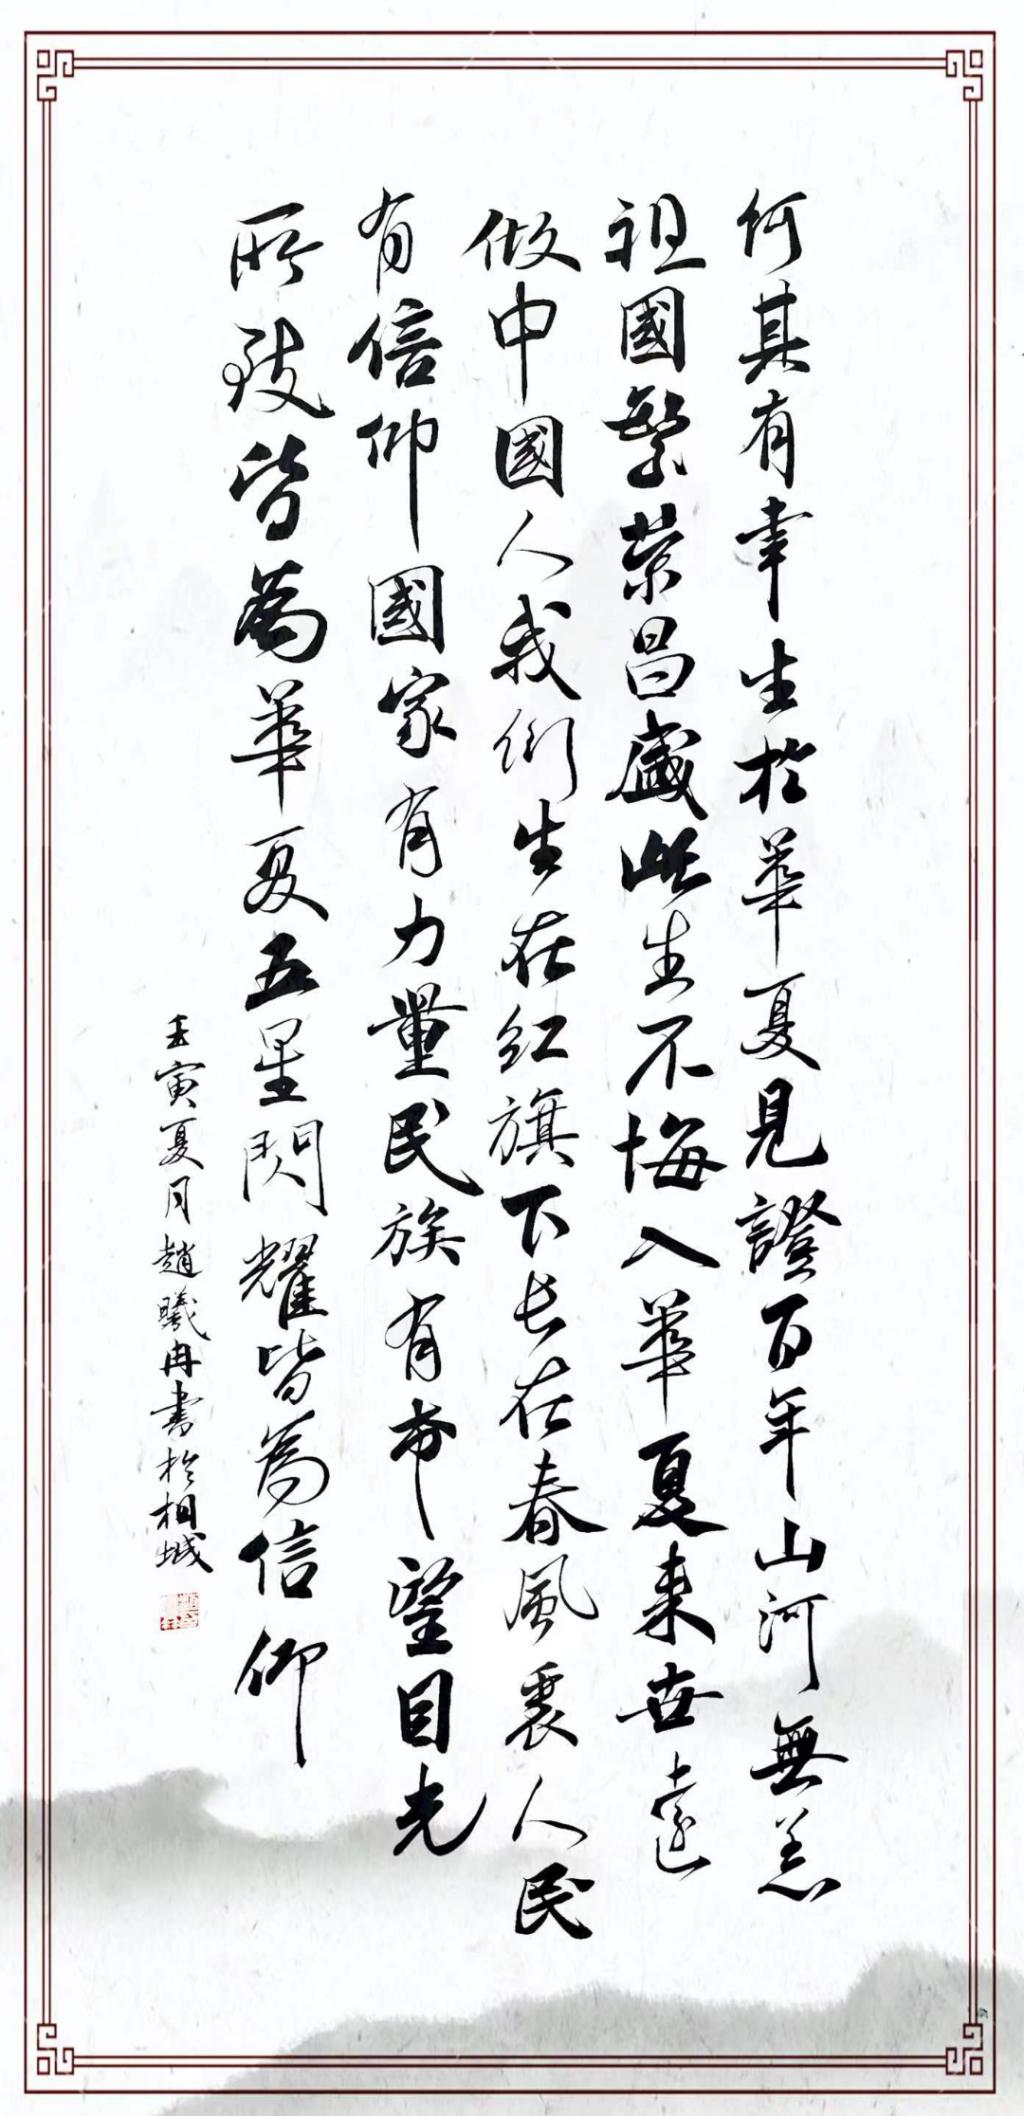 何其有幸生於華夏見證百年山河無恙
祖國繁荣昌盛此生不悔入華夏来世還
做中國人我们生在红旗下长在春風裏人民
有信仰國家有力量民族有希望目光
所致皆為華夏五星閃耀皆為信仰
壬寅夏月趙曦冉書於相城